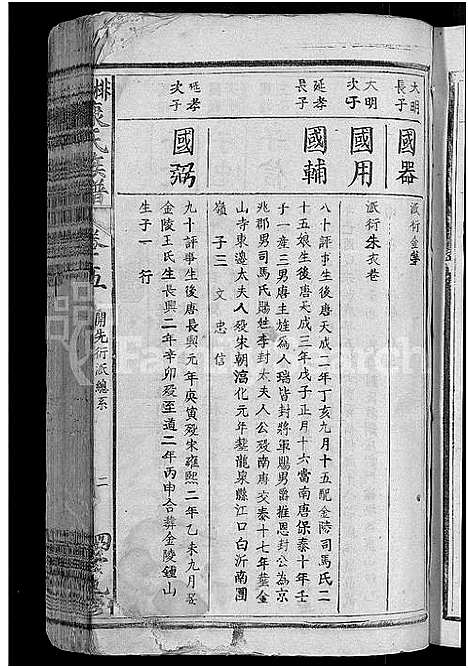 大明長子
國器
派衍金孥
大明次子
國用
派衍朱衣巷
延孝長子
國輔
八十評事生後唐天成二年丁亥九月十五配金陵司馬氏二
十五娘生後唐天成三年戊子正月十六當南唐保泰十年壬
子一產三男唐主旌為人瑞皆封將軍賜男爵推恩封公為京
兆郡男司馬氏賜姓李封太夫人公殁南唐交泰十七年葬金
山寺東邊太夫人殁宋朝淳化元年葬龍泉縣江口白沂南團
嶺 子三 文 忠 信
延孝次子
國弼
九十評事生後唐長興元年庚寅殁宋雍熙二年乙未九月娶
金陵王氏生長興二年辛卯殁至道二年丙申合葬金陵鍾山
生子一 行
氏族譜
卷十五
開先衍派總系
二